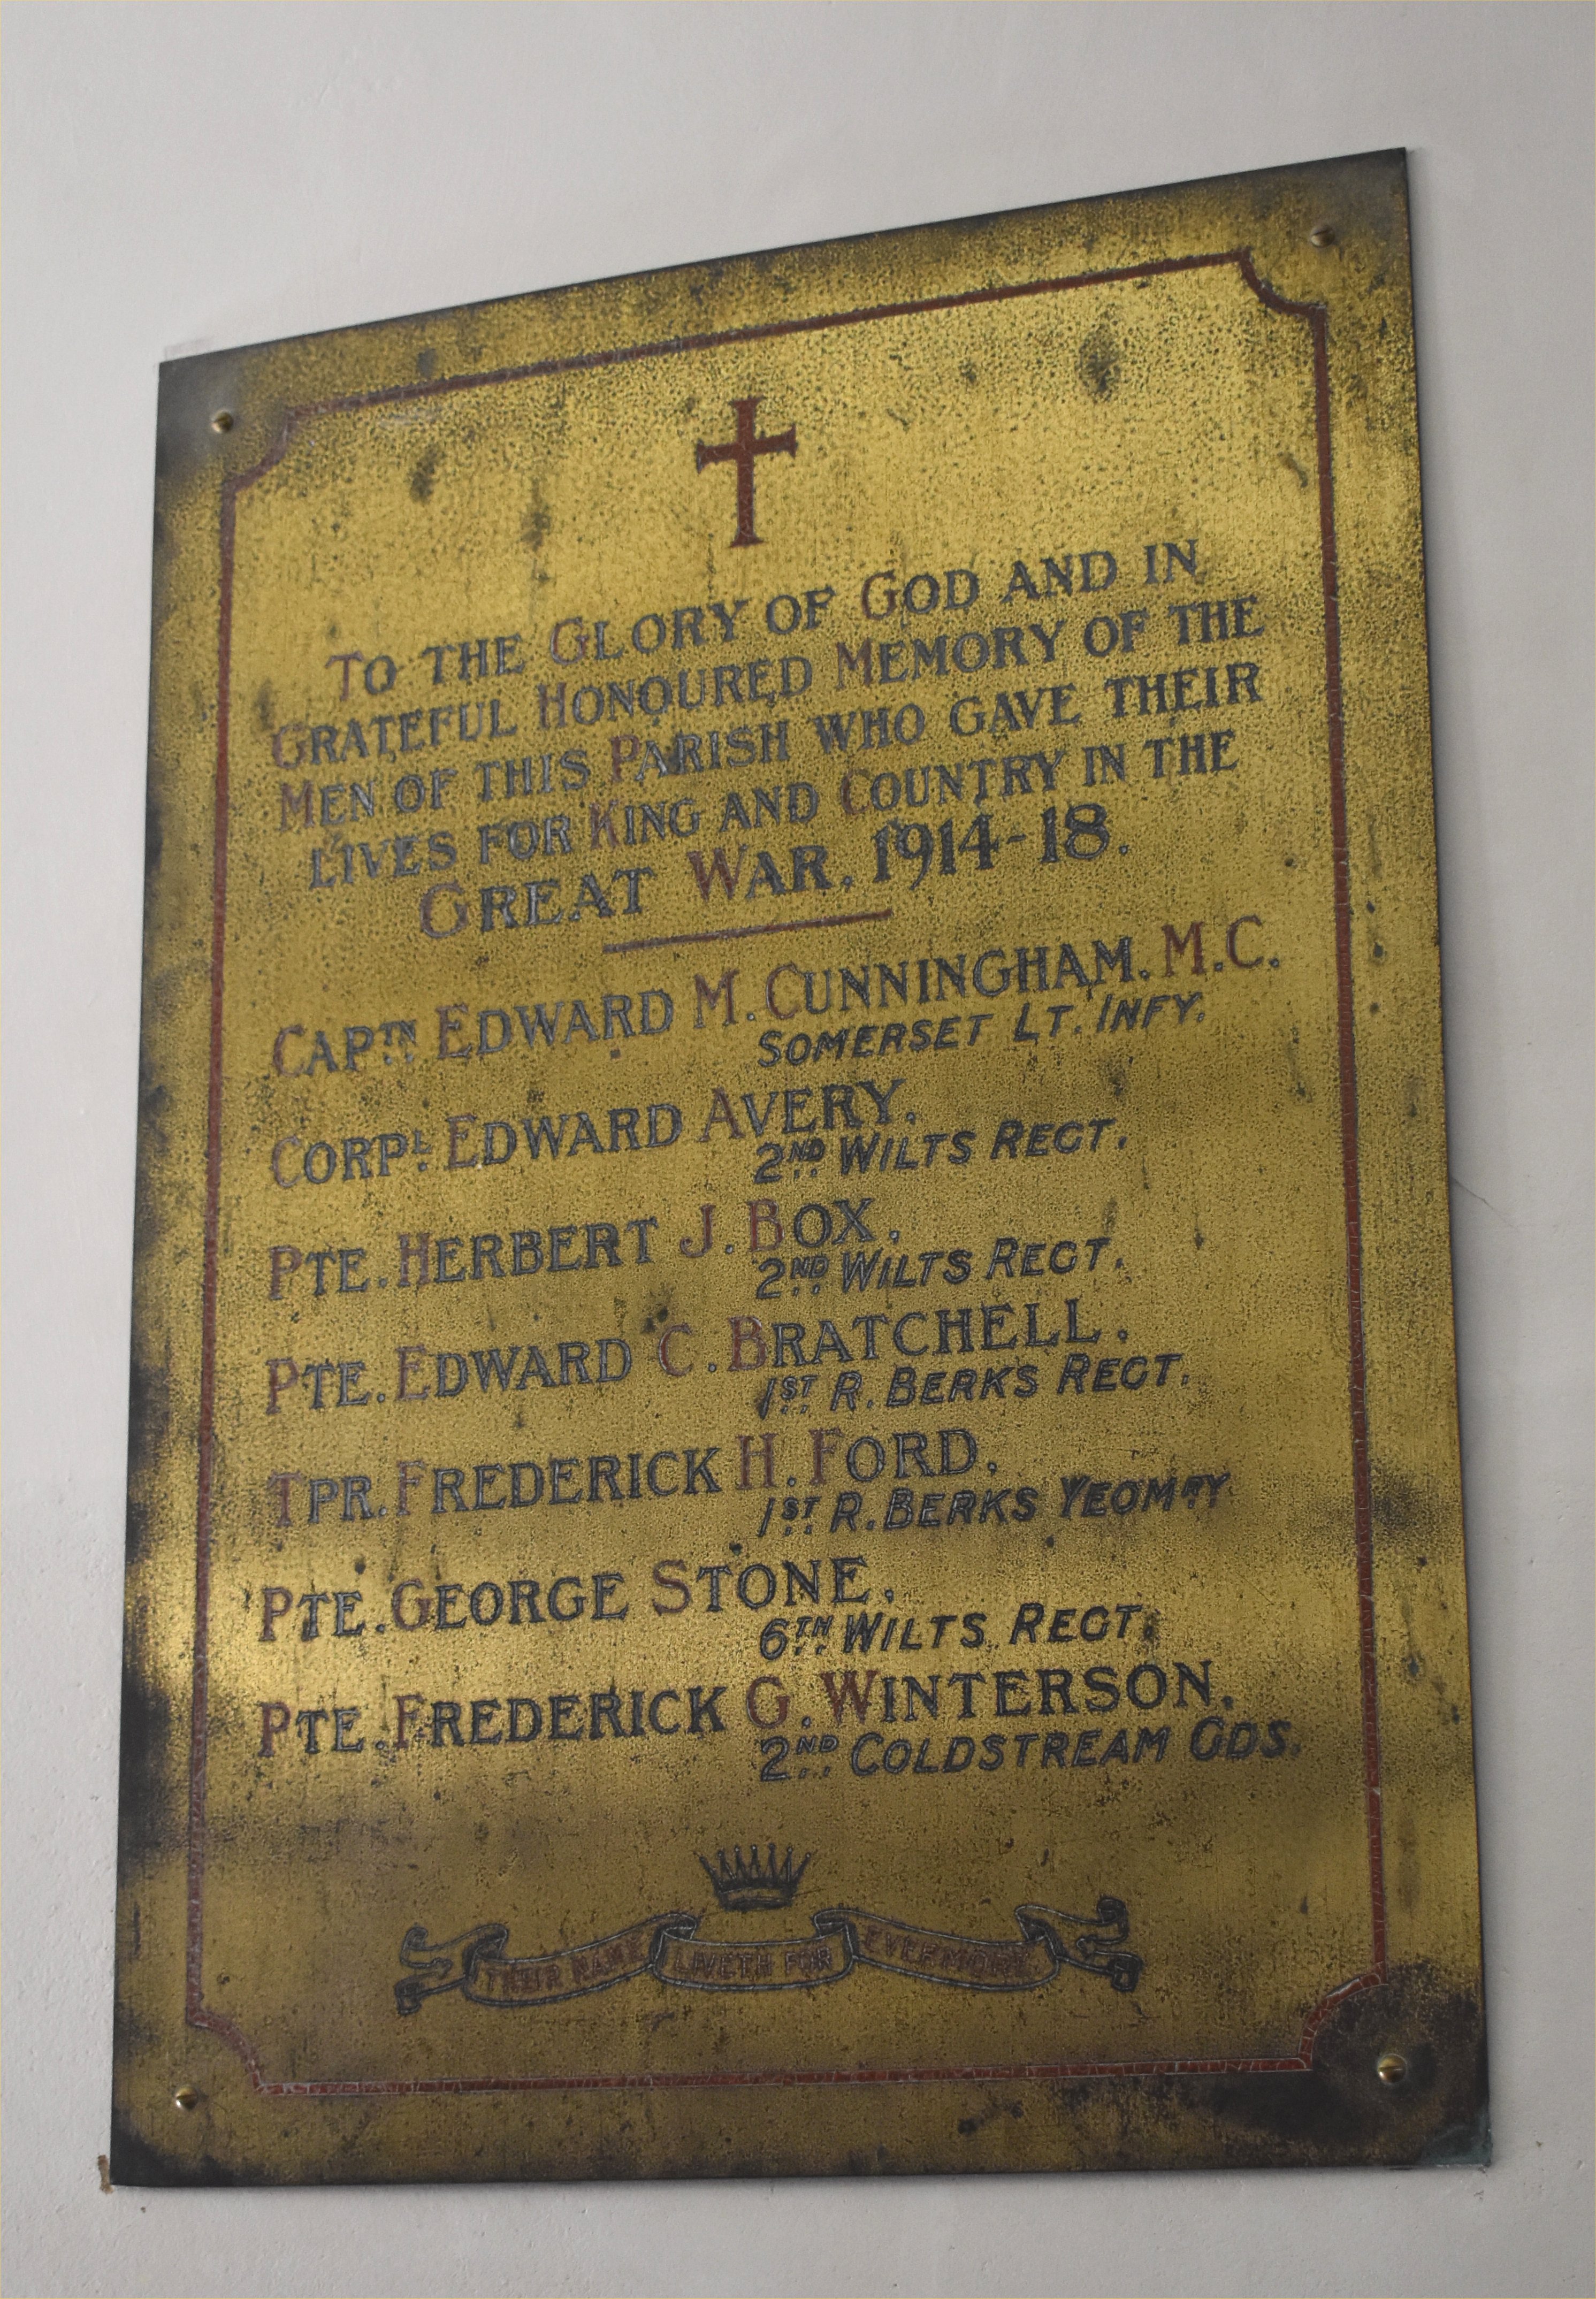 To the Glory of God and in
Grateful Honoured Memory of the
Men of this Parish who gave their
lives for King and Country in the
Great War. 1914-18.
Captn Edward M. Cunningham. M.C.
Somerset Lt. Infy.
Corpl. Edward Avery.
2nd. Wilts Regt.
Pte. Herbert J. Box.
2nd. Wilts Regt.
Pte. Edward C. Bratchell.
1st. R. Berks Regt.
Tpr. Frederick H. Ford.
1st. R. Berks Yeomry.
Pte. George Stone.
6th. Wilts Regt.
Pte. Frederick G. Winterson.
2nd. Coldstream Gds.
Their Name Liveth for Evermore